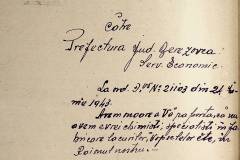 Către
Prefectura Jud. Berezovca
Serv. Economic.
La ord. Dvs No. 21103 din 24 Iu-
nie 1943.
Avem onoare a Vă raporta, că nu
avem evrei chimişti, specialişti în fa-
bricarea lacurilor, vopselelor etc, în
Raionul nostru.